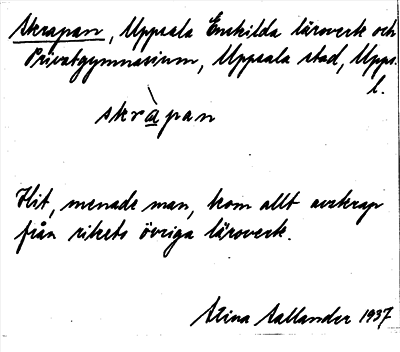 Skrapan, Uppsala Enskilda läroverk och
Privatgymnasium, Uppsala stad, Upps.
l.
skràpan
Hit, menade man, kom allt avskrap
från rikets övriga läroverk.
Stina Sallander 1937